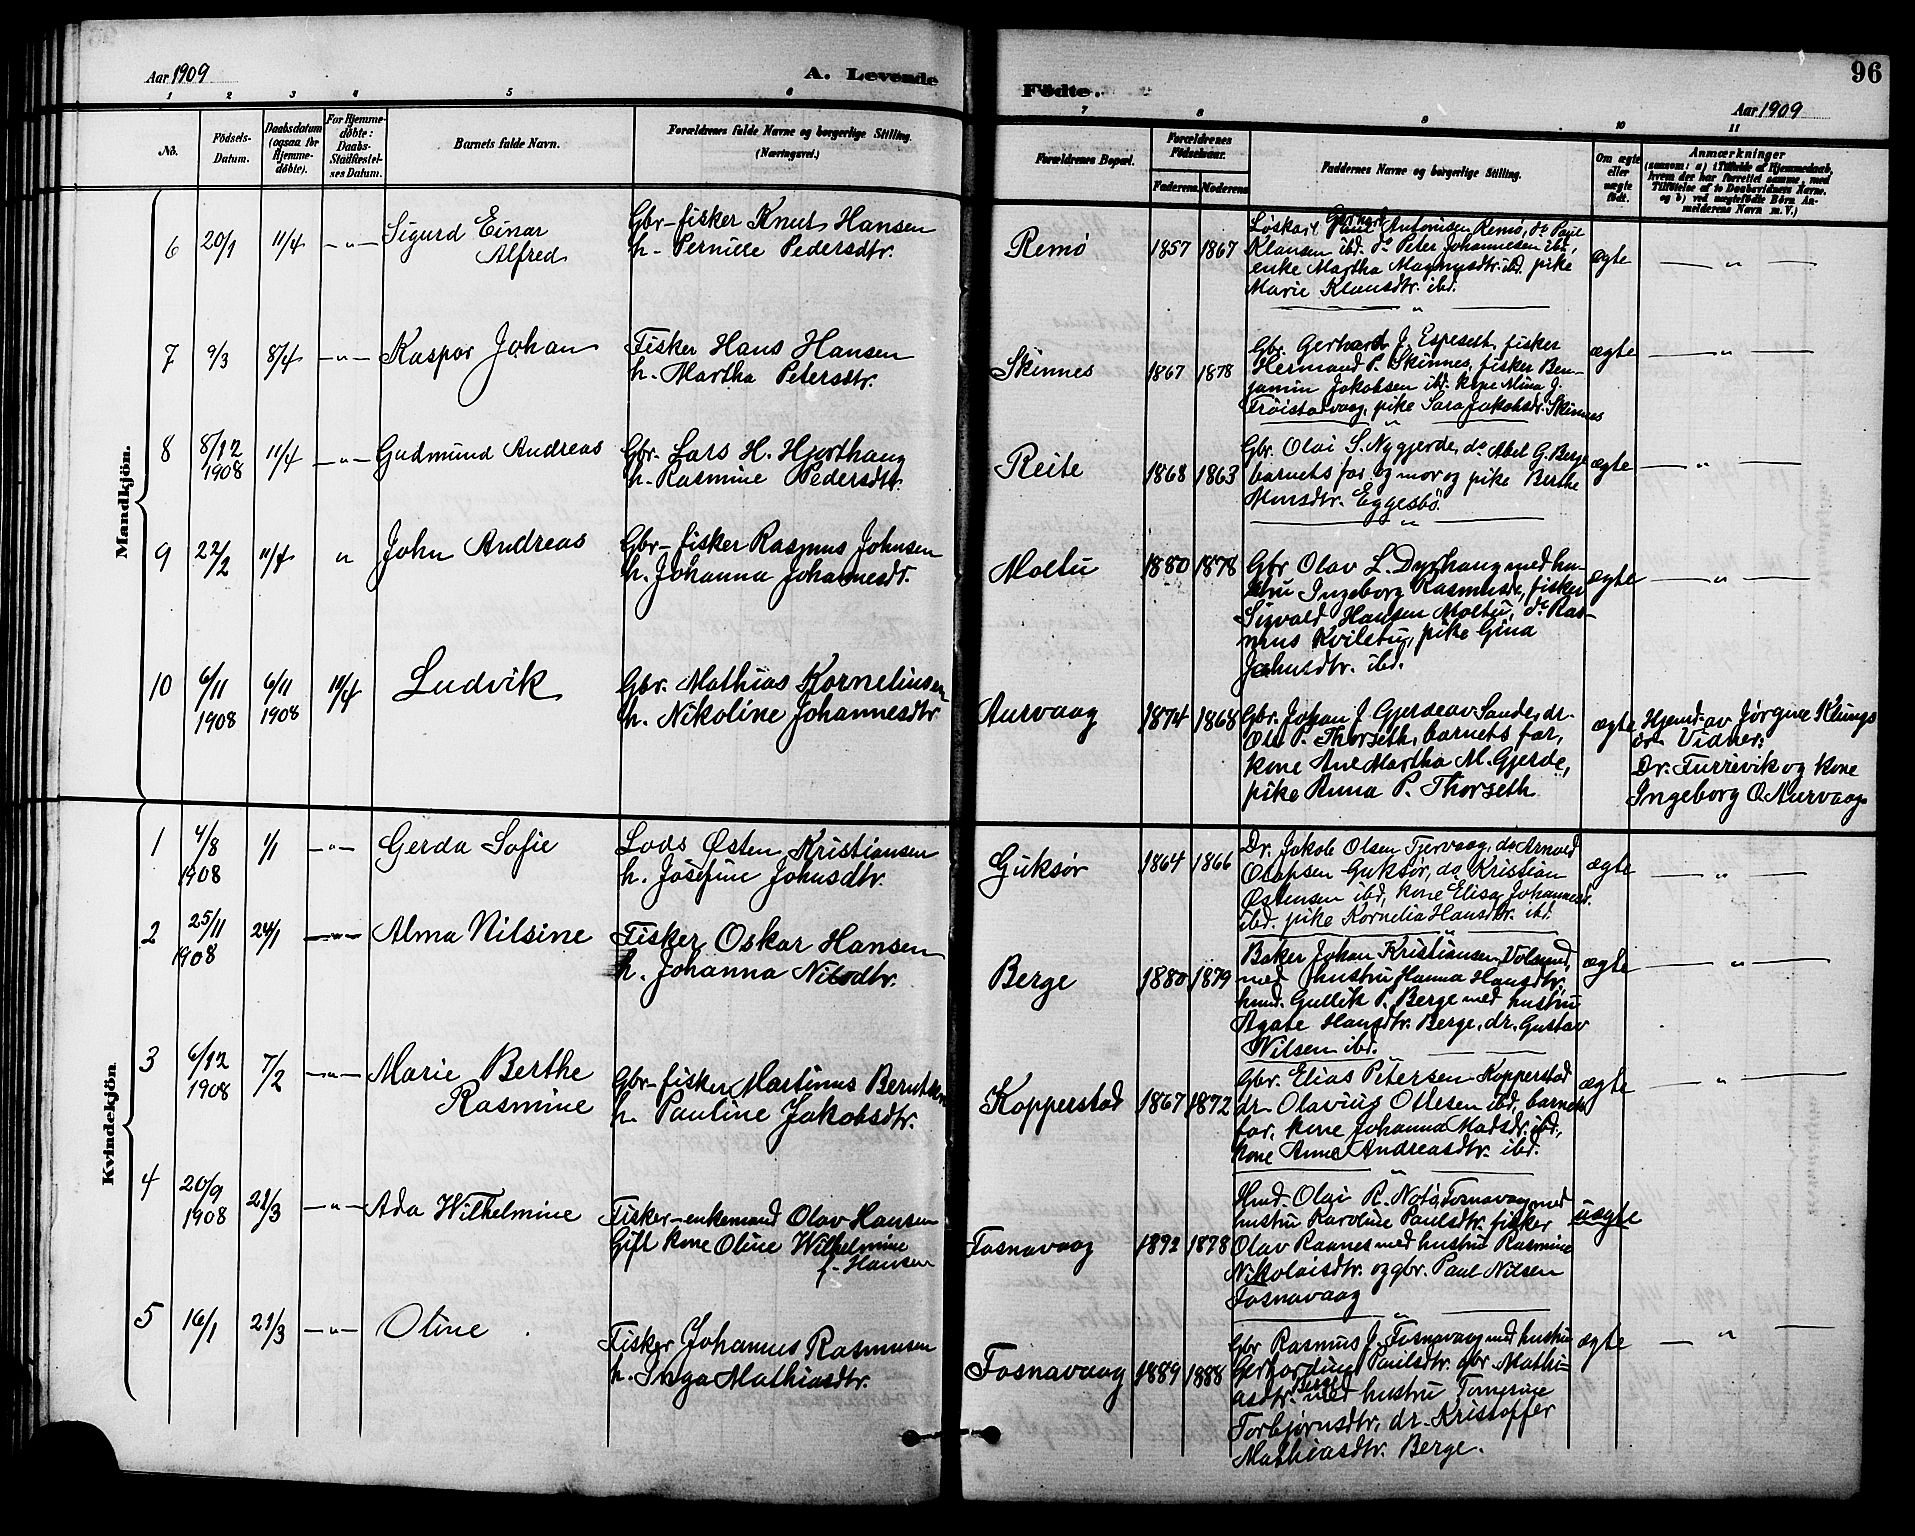 Aar 1909
A. Levende
Fødte.
96
Aar 1909
1 2 3 4 5 6 7 8 9 10 11
No.
Fødsels-
Datum.
Daabsdatum
(ogsaa for
Hjemme-
døbte).
For Hjemme-
døbte:
Daabs-
Stadfæstel-
ses Datum.
Barnets fulde Navn.
Forældrenes fulde Navne og borgerlige Stilling.
(Næringsvei.)
Forældrenes Bopæl.
Forældrenes
Fødselsaar.
Faderens. Moderens.
Faddernes Navne og borgerlige Stilling.
Om ægte
eller
uægte
født.
Anmærkninger
(saasom: a) i Tilfælde af Hjemmedaab,
hvem der har forrettet samme, med
Tilføielse af to Daabsvidners Navne,
og b) ved uægtefødte Børn An-
melderens Navn m. V.)
Mandkjön.
6 20/1 11/4 -"- Sigurd Einar
Alfred
Gbr-fisker Knut Hansen
h. Pernille Pedersdtr.
Remø 1857 1867
Antonisen Remø, do Paul
Klausen ibd. do Peter Johannesen ibd,
enke Martha Magnusdtr. ibd. pike
Marie Klausdtr. ibd.
ægte — " —
7 9/3 8/4 -"- Kaspar Johan
Fisker Hans Hansen
h. Martha Petersdtr.
Skinnes 1867 1878
Gbr. Gerhard J. Espeset, fisker
Hermand P. Skinnes, fisker Ben-
jamin Jakobsen ibd. kone Mina J.
pike Sara Jakobsdr. Skinnes
ægte — " —
8 8/12
1908 11/4 -"- Gudmund Andreas
Gbr. Lars H. Hjorthaug
h. Rasmine Pedersdtr.
Reite 1868 1863
Gbr. Olai S. Nygjerde, do Abel G. Berge
barnets far og mor og pike Berthe
Eggesbö.
ægte — " —
9 22/2 11/4 " John Andreas
Gbr-fisker Rasmus Johnsen
h. Johanna Johannesdr.
Moltu 1880 1878
Gbr Olav L. Dyrhaug med hu-
stru Ingeborg Rasmusdr, fisker
Sigvald Hansen Moltu, do Ras-
mus Kvilstug, pike Gina
Johnsdtr. ibd.
ægte — " —
10 6/11
1908 6/11
1908 11/4 Ludvik
Gbr. Mathias Kornelinsen
h. Nikoline Johannesdtr
Aurvaag 1874 1868
Gbr. Johan J Gjerde av Sande, dr.
Ole P. Thorseth, barnets far,
kone Ane Martha M. Gjerde,
pike Anna P. Thorseth
ægte
Hjemd. av Jørgine Klungs
ør Vidner:
Dr. Furrevik og kone
Ingeborg O Aurvaag
Kvindekjön
1 4/8
1908 1/1 -"- Gerda Sofie
Lods Østen Kristiansen
h. Josefine Johnsdtr.
Guksør 1864 1866
Dr. Jakob Olsen Tjervaag, do Arnold
Olafsen Guksør, do Kristian
Østensen ibd, kone Elisa Johannesdr.
ibd. pike Kornelia Hansdtr. ibd.
ægte — " —
2 25/11
1908 24/1 -"- Alma Nilsine
Fisker Oskar Hansen
h. Johanna Nilsdtr.
Berge 1880 1879
Baker Johan Kristiansen Volsund,
med hustru Hanna Hansdtr,
hmd. Gullik P. Berge med hustru
Agate Hansdtr. Berge, dr. Gustav
Nilsen ibd.
ægte — " —
3 6/12
1908 7/2 -"- Marie Berthe
Rasmine
Gbr-fisker Martinus Berntsen
h. Pauline Jakobsdtr.
Kopperstad 1867 1872
Gbr. Elias Petersen Kopperstad
dr. Olavius Ottesen ibd, barnets
far, kone Johanna Madsdr. ibd,
kone Anne Andreasdtr. ibd.
ægte — " —
4 20/9
1908 21/3 -"- Ada Wilhelmine
Fisker-enkemand Olav Hansen
Gift kone Oline Wilhelmine
f. Hansen
Fosnavaag 1892 1878
Hmd. Olai R. Notø, Fosnavaag med
hustru Karoline Paulsdtr. fisker
Olav Raanes med hustru Rasmine
Nikolaisdtr. og gbr. Paul Nilsen
Fosnavaag
uægte
5 16/1 21/3 -"- Oline
Fisker Johannes Rasmusen
h. Inga Mathiasdtr.
Fosnavaag 1889 1888
Gbr Rasmus J. Fosnavaag med hustru
Gerhardine Paulsdtr. gbr. Mathi-
asdtr. Berge med hustru
Torbjørnsdtr, dr. Kristoffer
Mathiasdtr. Berge.
ægte — " —